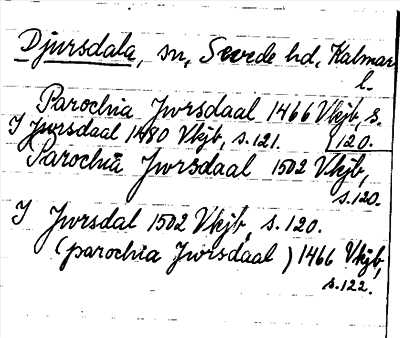 Djursdala, sn, Sevede hd, Kalmar
l.
Parochia Jwrsdaal 1466 Vkjb, s.
120.
I Jwrsdaal 1480 Vkjb, s. 121.
Parochia Jwrsdaal 1502 Vkjb,
s. 120.
I Jwrsdal 1502 Vkjb, s. 120.
(parochia Jwrsdaal) 1466 Vkjb,
s. 122.